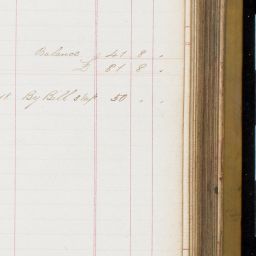 Balance 41 8 .
£ 81 8 .
By Bill 50 . .